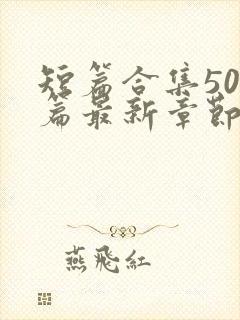 短篇合集50
篇最新章節
燕飛紅